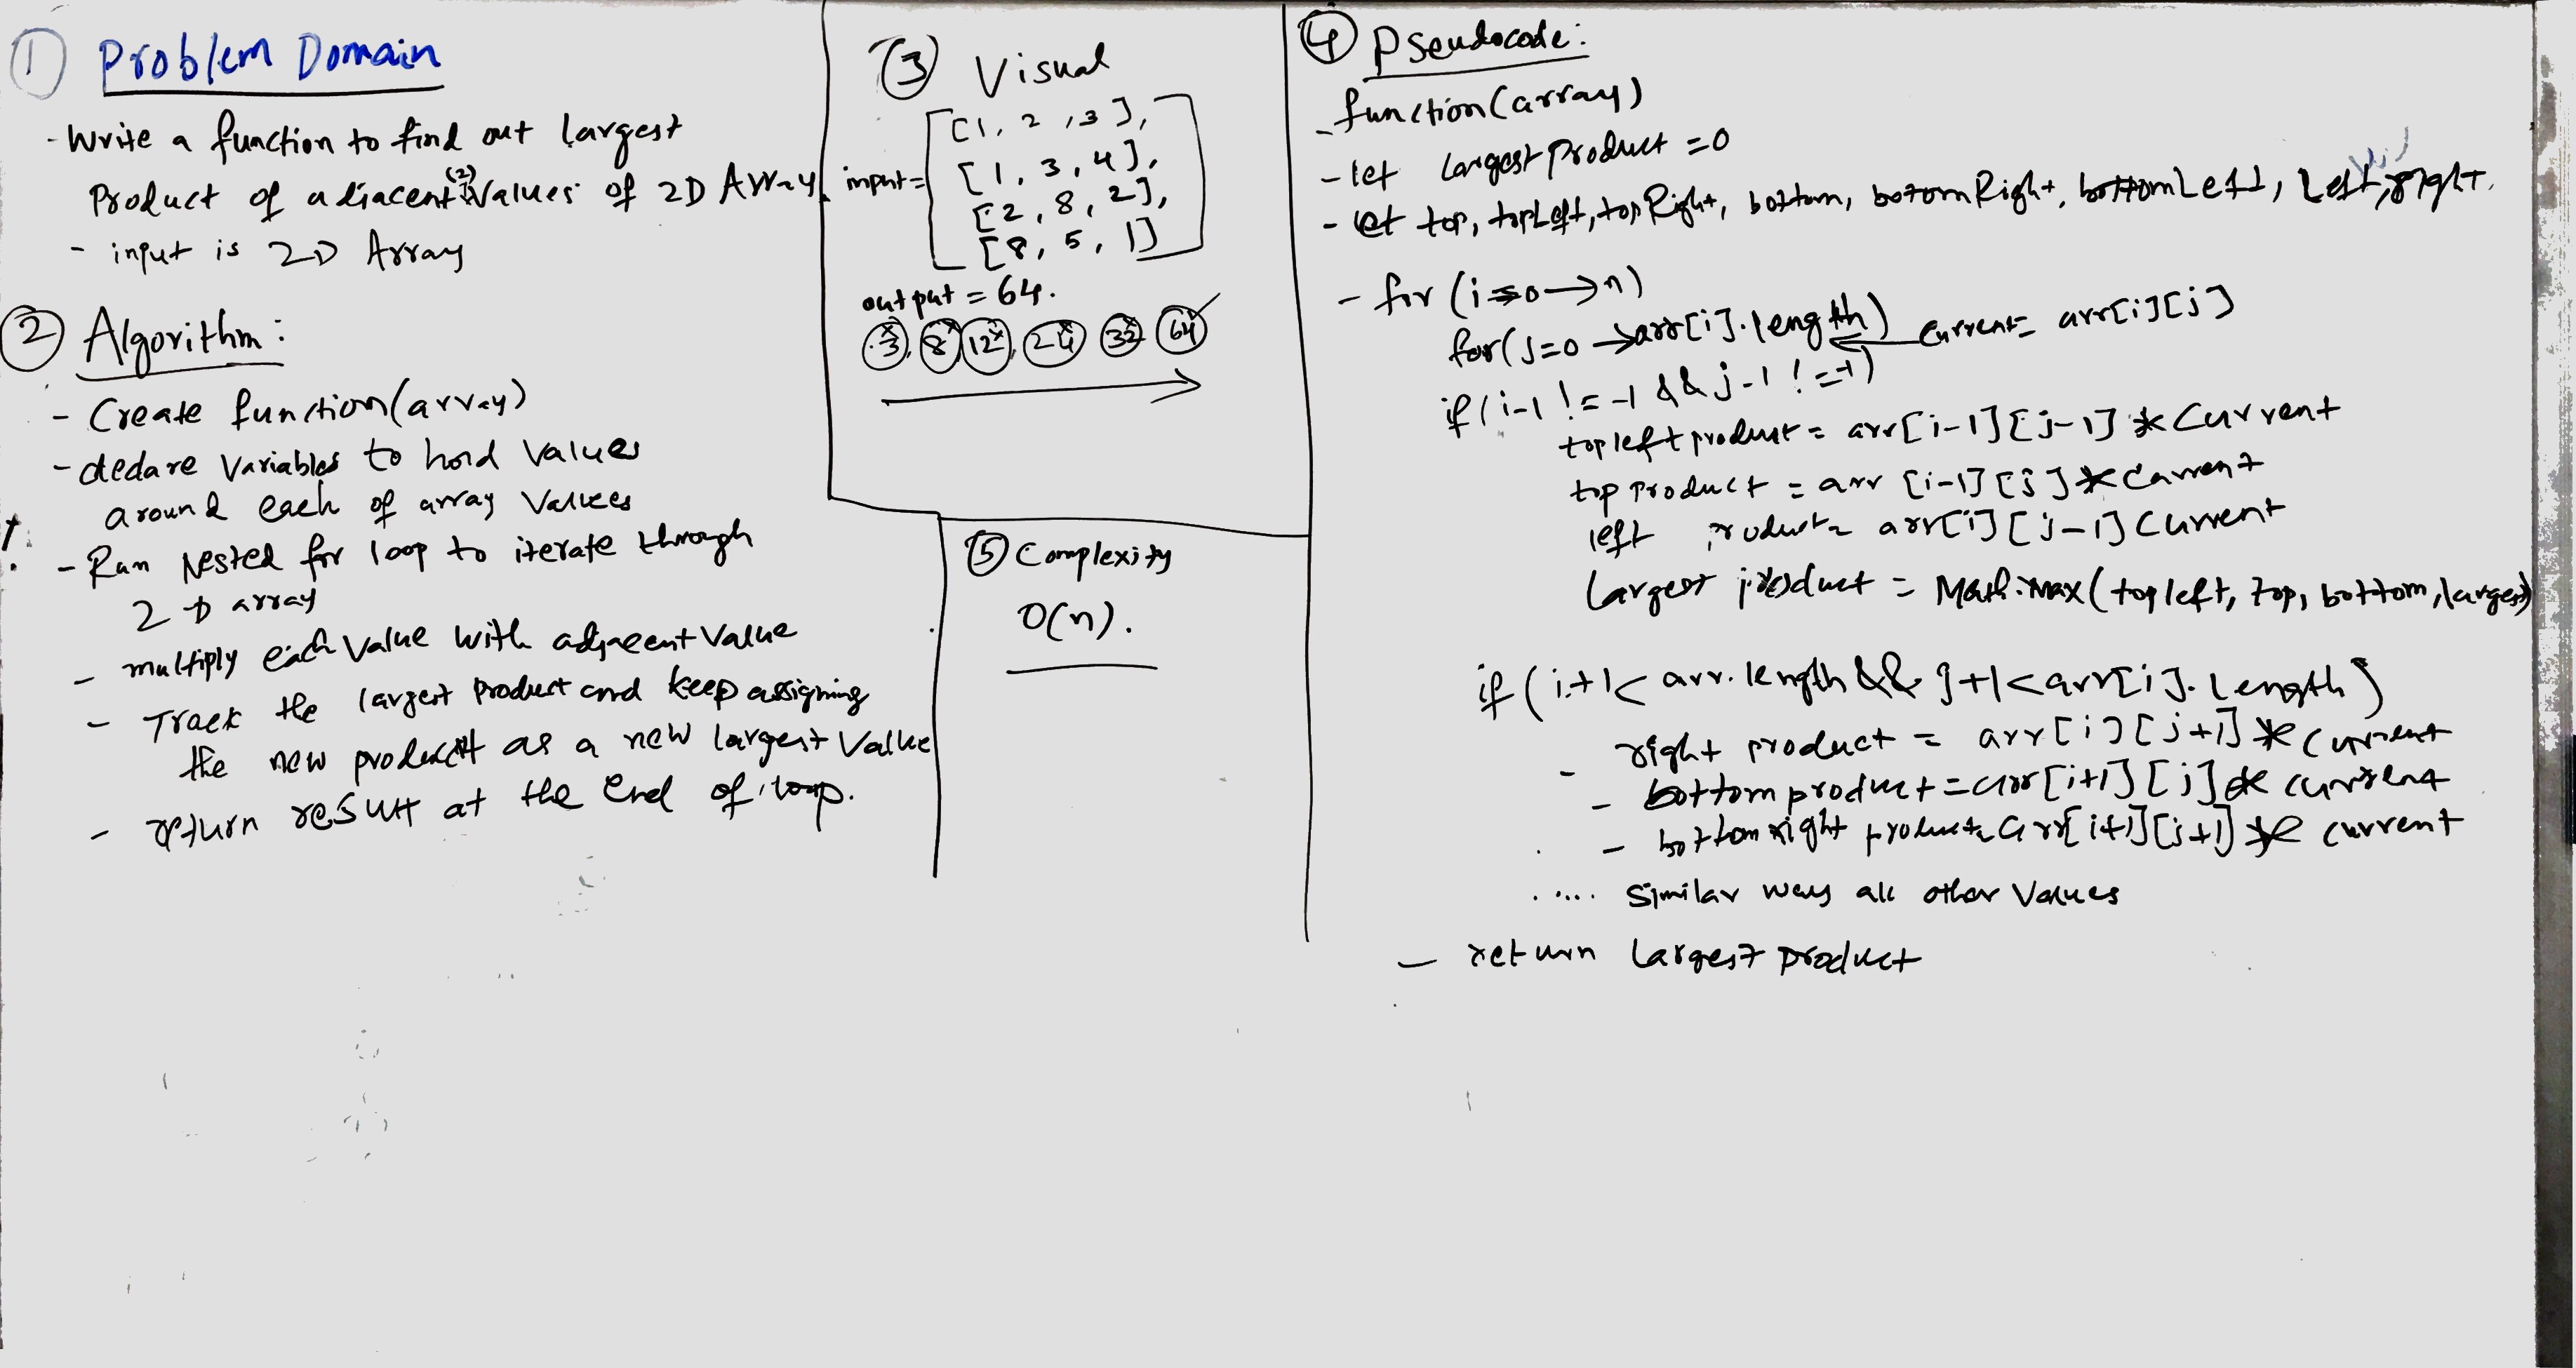 ① Problem Domain
- Write a function to find out largest
Product of adjacent (2) Values of 2D Array.
- input is 2D Array
② Algorithm:
- Create function(array)
- declare Variables to hold values
around each of array Values
- Run Nested for loop to iterate through
2D array
- multiply each Value with adjacent Value
- Track the largest product and keep assigning
the new product as a new largest Value
- return result at the end of loop.
③ Visual
input = [[1, 2, 3],
[1, 3, 4],
[2, 8, 2],
[8, 5, 1]]
output = 64.
3, 8, 12, 24, 32, 64
⑤ Complexity
O(n).
④ Pseudocode:
- function(array)
- let largestProduct = 0
- let top, topLeft, topRight, bottom, botomRight, bottomLeft, Left, right.
- for (i=0→n)
for(j=0→arr[i].length) current= arr[i][j]
if(i-1 != -1 && j-1 != -1)
topleftproduct = arr[i-1][j-1] * Current
top product = arr [i-1][j] * Current
left product= arr[i][j-1] Current
Largest product = Math.max(topleft, top, bottom, largest)
if (i+1< arr.length && j+1<arr[i].Length)
- right product = arr[i][j+1] * current
- bottomproduct = arr[i+1][j] * current
- bottomright product= arr[i+1][j+1] * current
..... Similar way all other Values
- return Largest product